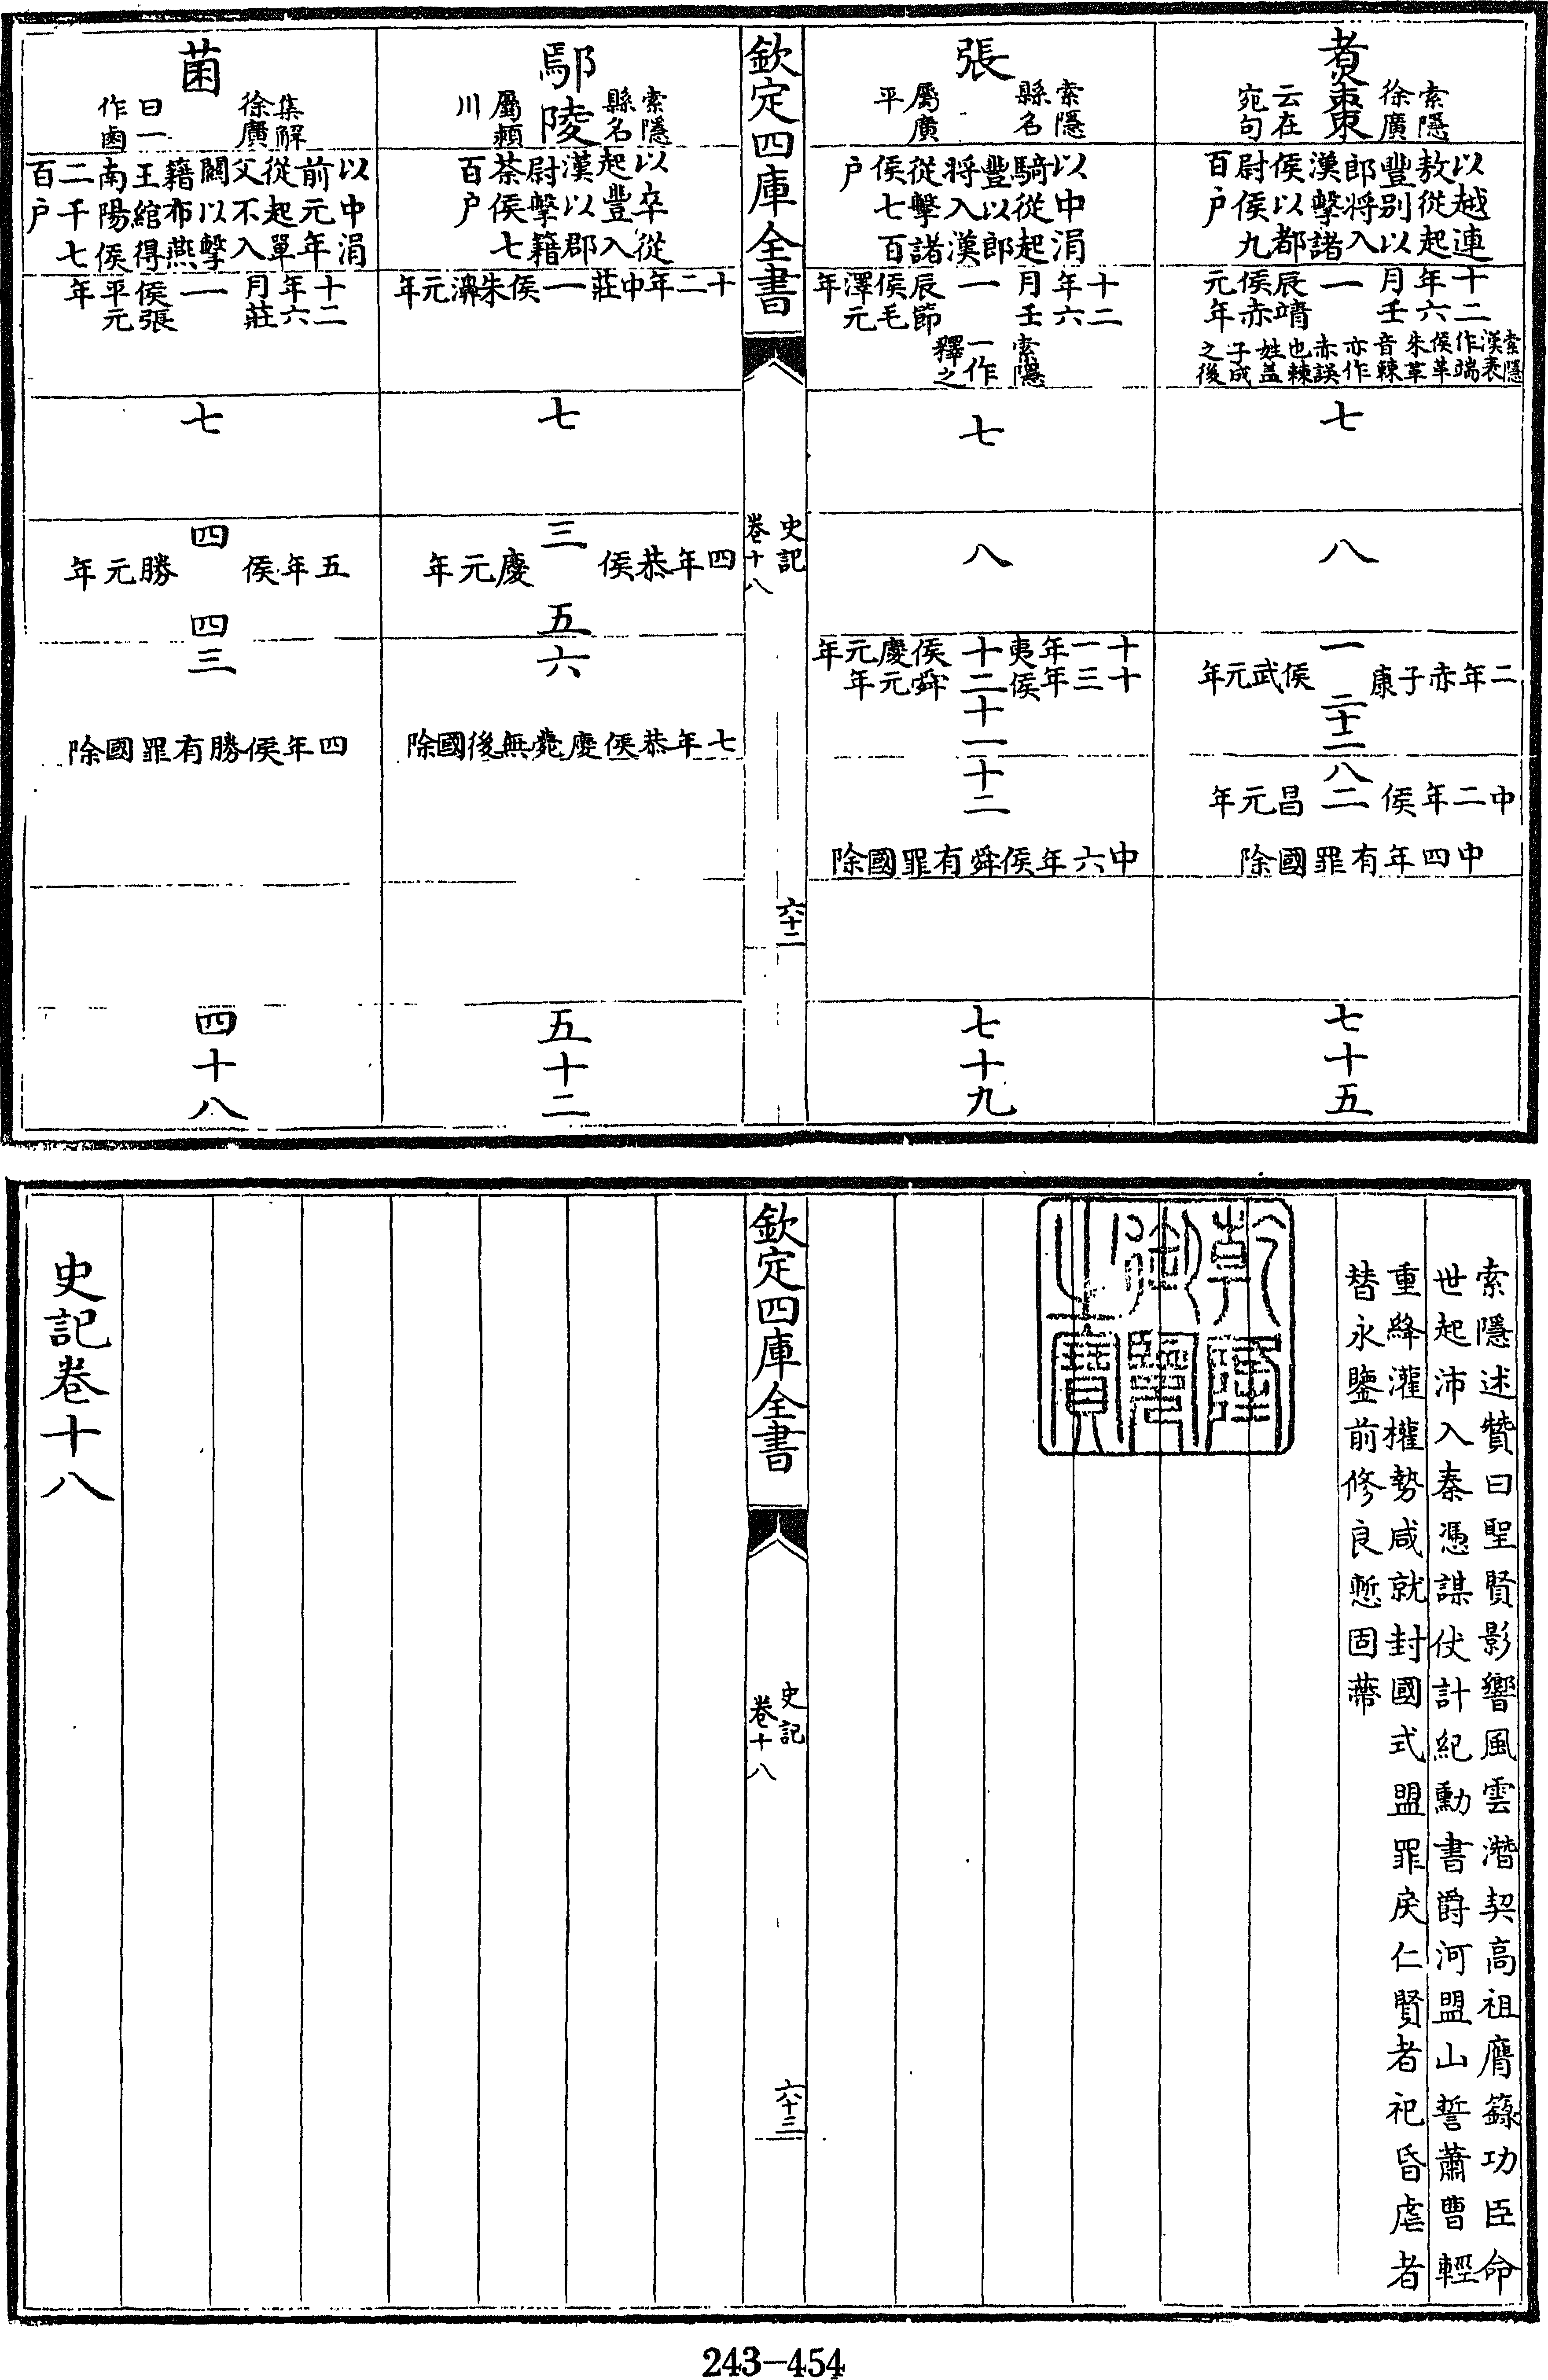 煑棗
索隱
徐廣
云在
宛句
以越連
敖從起
豐别以
郎将入
漢擊諸
侯以都
尉侯九
百户
十二
年六
月壬
一
辰靖
侯赤
元年
索隱
漢表
作端
侯革
朱革
音棘
亦作
赤誤
也棘
姓盖
子成
之後
七
八
一
二年赤子康
侯武元年
二十二
八
二
中二年侯
昌元年
中四年有罪國除
七十五
張
索隱
縣名
屬廣
平
以中涓
騎從起
豐以郎
将入漢
從擊諸
侯七百
户
十二
年六
月壬
一
辰節
侯毛
澤元
年
索隱
一作
釋之
七
八
十
十一年夷
侯慶元年
二
十三年侯
舜元年
十一
十二
中六年侯舜有罪國除
七十九
欽定四庫全書
史記
卷十八
六十二
鄢陵
索隱
縣名
屬頴
川
以卒從
起豐入
漢以郡
尉擊籍
荼侯七
百户
十二年中莊
一
侯朱濞元年
七
三
四年恭侯
慶元年
五
六
七年恭侯慶薨無後國除
五十二
菌
集解
徐廣
曰一
作卤
以中涓
前元年
從起單
父不入
關以擊
籍布燕
王綰得
南陽侯
二千七
百户
十二
年六
月莊
一
侯張
平元
年
七
四
五年侯
勝元年
四
三
四年侯勝有罪國除
四十八
索隱述贊曰聖賢影響風雲潛契高祖膺籙功臣命
世起沛入秦憑謀仗計紀勳書爵河盟山誓蕭曹輕
重絳灌權勢咸就封國式盟罪戾仁賢者祀昏虐者
替永鑒前修良慙固蔕
乾隆
御覽
之寶
欽定四庫全書
史記
卷十八
六十三
史記卷十八
243-454